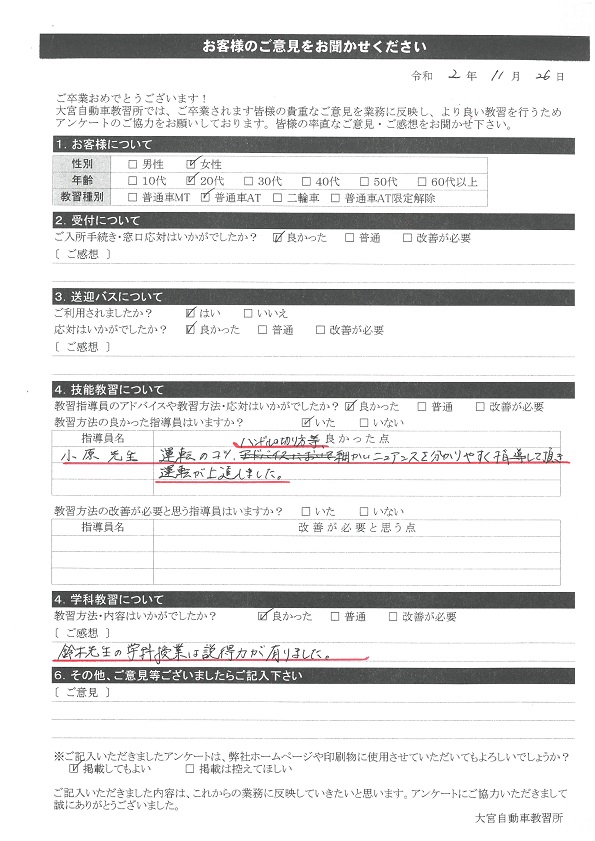 お客様のご意見をお聞かせください
令和 2 年 11 月 26 日
ご卒業おめでとうございます！
大宮自動車教習所では、ご卒業されます皆様の貴重なご意見を業務に反映し、より良い教習を行うため
アンケートのご協力をお願いしております。皆様の率直なご意見・ご感想をお聞かせ下さい。
1. お客様について
性別 □ 男性 ☑ 女性
年齢 □ 10代 ☑ 20代 □ 30代 □ 40代 □ 50代 □ 60代以上
教習種別 □ 普通車MT ☑ 普通車AT □ 二輪車 □ 普通車AT限定解除
2. 受付について
ご入所手続き・窓口応対はいかがでしたか？ ☑ 良かった □ 普通 □ 改善が必要
〔 ご感想 〕
3. 送迎バスについて
ご利用されましたか？ ☑ はい □ いいえ
応対はいかがでしたか？ ☑ 良かった □ 普通 □ 改善が必要
〔 ご感想 〕
4. 技能教習について
教習指導員のアドバイスや教習方法・応対はいかがでしたか？ ☑ 良かった □ 普通 □ 改善が必要
教習方法の良かった指導員はいますか？ ☑ いた □ いない
指導員名 良かった点
ハンドルの切り方等
小原 先生 運転のコツ、細かいニュアンスを分かりやすく指導して頂き
運転が上達しました。
教習方法の改善が必要と思う指導員はいますか？ □ いた □ いない
指導員名 改善が必要と思う点
4. 学科教習について
教習方法・内容はいかがでしたか？ ☑ 良かった □ 普通 □ 改善が必要
〔 ご感想 〕
鈴木先生の学科授業は説得力が有りました。
6. その他、ご意見等ございましたらご記入下さい
〔 ご意見 〕
※ご記入いただきましたアンケートは、弊社ホームページや印刷物に使用させていただいてもよろしいでしょうか？
☑ 掲載してもよい □ 掲載は控えてほしい
ご記入いただきました内容は、これからの業務に反映していきたいと思います。アンケートにご協力いただきまして
誠にありがとうございました。
大宮自動車教習所